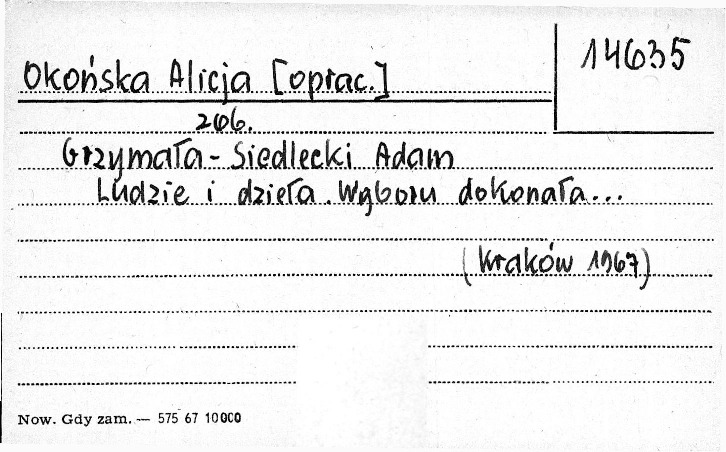 14635
Okońska Alicja [oprac.]
zob.
Grzymała-Siedlecki Adam
Ludzie i dzieła. Wyboru dokonała...
(Kraków 1967)
Now. Gdy zam. — 575 67 10000